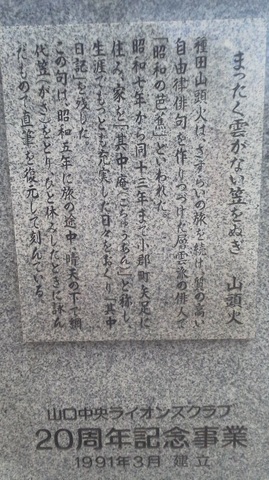 まったく雲がない笠をぬぎ　山頭火
種田山頭火は、さすらいの旅を続け、質の高い
自由律俳句を作りつづけた層雲派の俳人で
「昭和の芭蕉」といわれた。
昭和七年から同十三年まで小郡町矢足に
住み、家を「其中庵(ごちゅうあん)」と称し、
生涯でもっとも充実した日々をおくり「其中
日記」を残した。
この句は、昭和五年に旅の途中、晴天の下で網
代笠(がさ)をとり、ひと休みしたときに詠ん
だもので、直筆を復元して刻んでいる。
山口中央ライオンズクラブ
20周年記念事業
1991年3月 建立